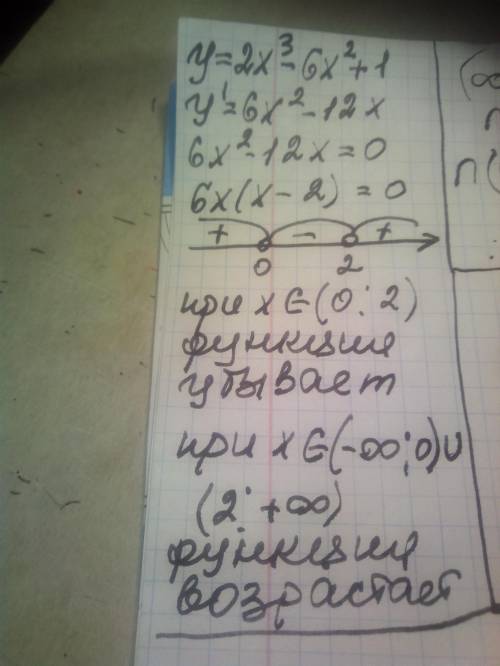 y = 2x³ - 6x² + 1
y' = 6x² - 12x
6x² - 12x = 0
6x(x - 2) = 0
+ - +
0 2
при x ∈ (0; 2)
функция
убывает
при x ∈ (-∞; 0) ∪
(2; +∞)
функция
возрастает